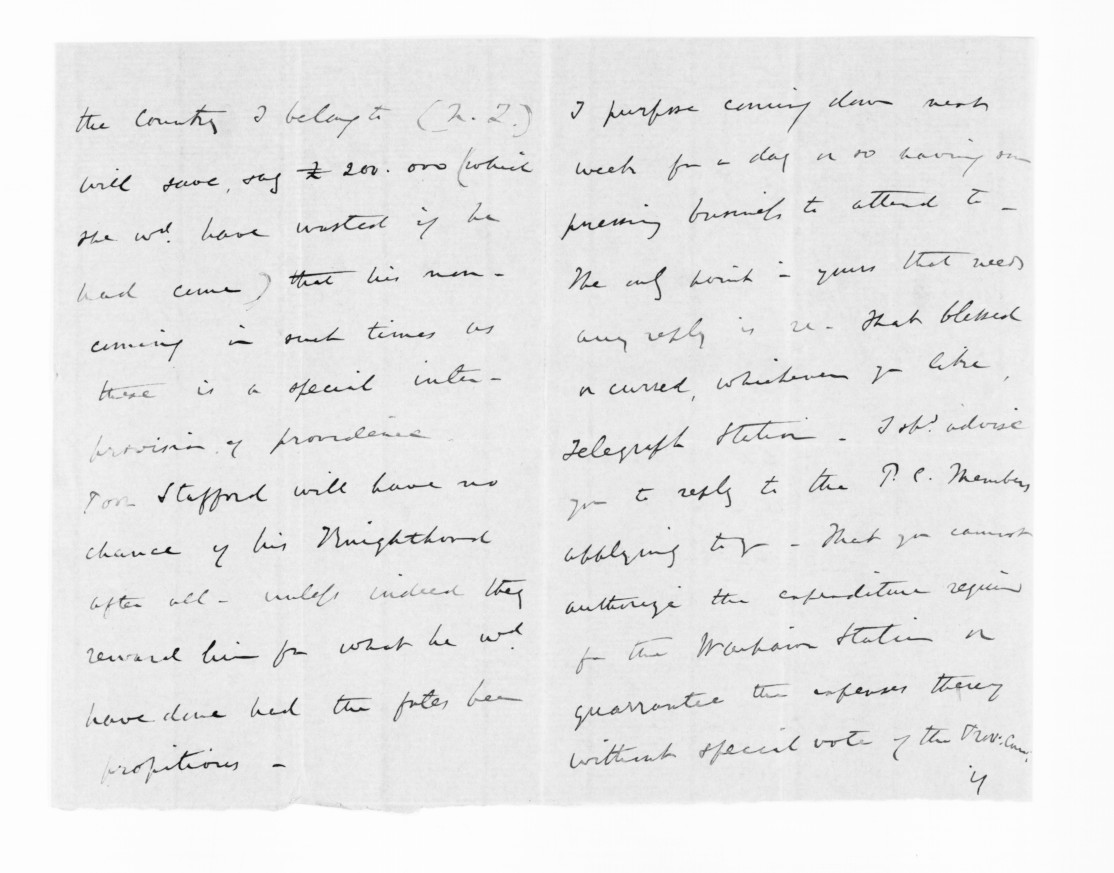 the Country I belong to (N. Z.)
will save, say £ 200.000 (which
she wd. have wasted if he
had come) that his non-
coming in such times as
these is a special inter-
provision of providence
Poor Stafford will have no
chance of his Knighthood
after all - unless indeed they
reward him for what he wd.
have done had the fates been
propitious -
I purpose coming down next
week for a day or so having some
pressing business to attend to -
The only point in yours that needs
any reply is re - that blessed
or cursed, whichever you like,
Telegraph Station - I shd. advise
you to reply to the P. C. Members
applying to you - that you cannot
authorize the expenditure required
for the Station or
guarrantee the expenses thereof
without special vote of the Prov: Coun:
if